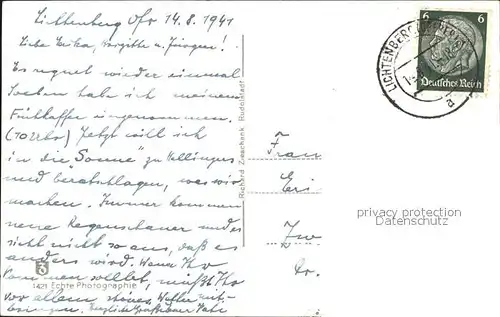 Lichtenberg Ofr 14.8.1941
Liebe Erika, Brigitte u. Jürgen!
Es regnet wieder einmal
Soeben habe ich meinen
Frühkaffee eingenommen.
(10 Uhr) Jetzt will ich
in die „Sonne" zu
und beratschlagen, was wir
machen. Immer kommen
neue Regenschauer und es
sieht nicht so aus, daß es
anders wird. Wenn Ihr
kommen wolltet, müßt Ihr
vor allem schönes Wetter mit-
bringen. Herzliche Grüße Euer Vati
1421 Echte Photographie
Richard Zieschank Rudolstadt
6 6
Deutsches Reich
LICHTENBERG
a
Frau
Eri
Zw
privacy protection
Datenschutz